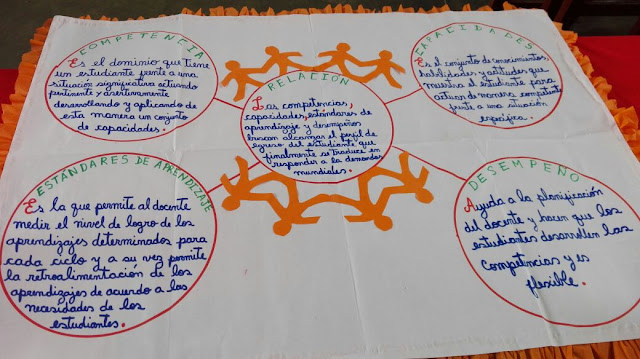 COMPETENCIA
Es el dominio que tiene
un estudiante frente a una
situación significativa activando
pertinente y asertivamente
desarrollando y aplicando de
esta manera un conjunto
de capacidades.
RELACIÓN
Las competencias,
capacidades, estándares de
aprendizaje y desempeños
buscan alcanzar el perfil de
egreso del estudiante que
finalmente se traduce en
responder a la demandas
mundiales.
CAPACIDADES
Es el conjunto de conocimientos,
habilidades y actitudes que
muestra el estudiante para
actuar de manera competente
frente a una situación
específica.
ESTÁNDARES DE APRENDIZAJE
Es la que permite al docente
medir el nivel de logro de los
aprendizajes determinados para
cada ciclo y a su vez permite
la retroalimentación de los
aprendizajes de acuerdo a las
necesidades de los
estudiantes.
DESEMPEÑO
Ayuda a la planificación
del docente y hacen que los
estudiantes desarrollen las
competencias y es
flexible.